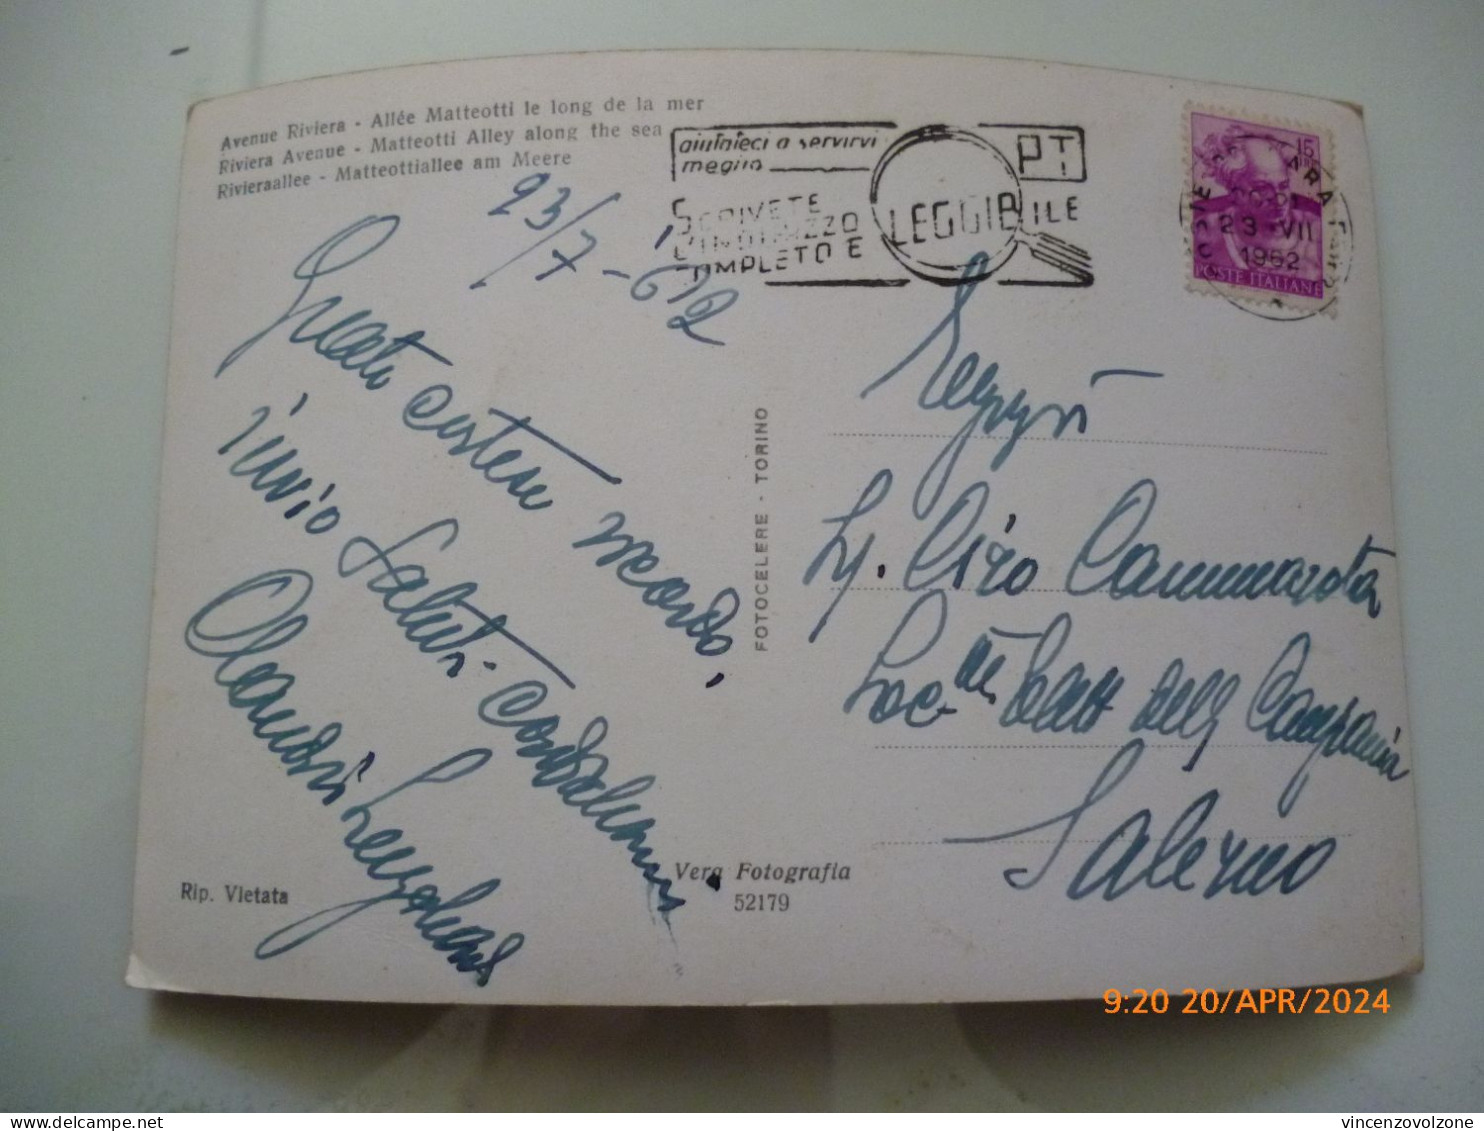 Avenue Riviera - Allée Matteotti le long de la mer
Riviera Avenue - Matteotti Alley along the sea
Rivieraallee - Matteottiallee am Meere
aiutateci a servirvi
meglio
PT
SCRIVETE
L'INDIRIZZO
COMPLETO E LEGGIBILE
15
POSTE ITALIANE
23 VII
1962
23/7-62
Grato cortese ricordo,
invio saluti cordialissimi
FOTOCELERE - TORINO
Ciro Cammarota
Campania
Salerno
Rip. Vietata
Vera Fotografia
52179
9:20 20/APR/2024
delcampe.net
vincenzovolzone